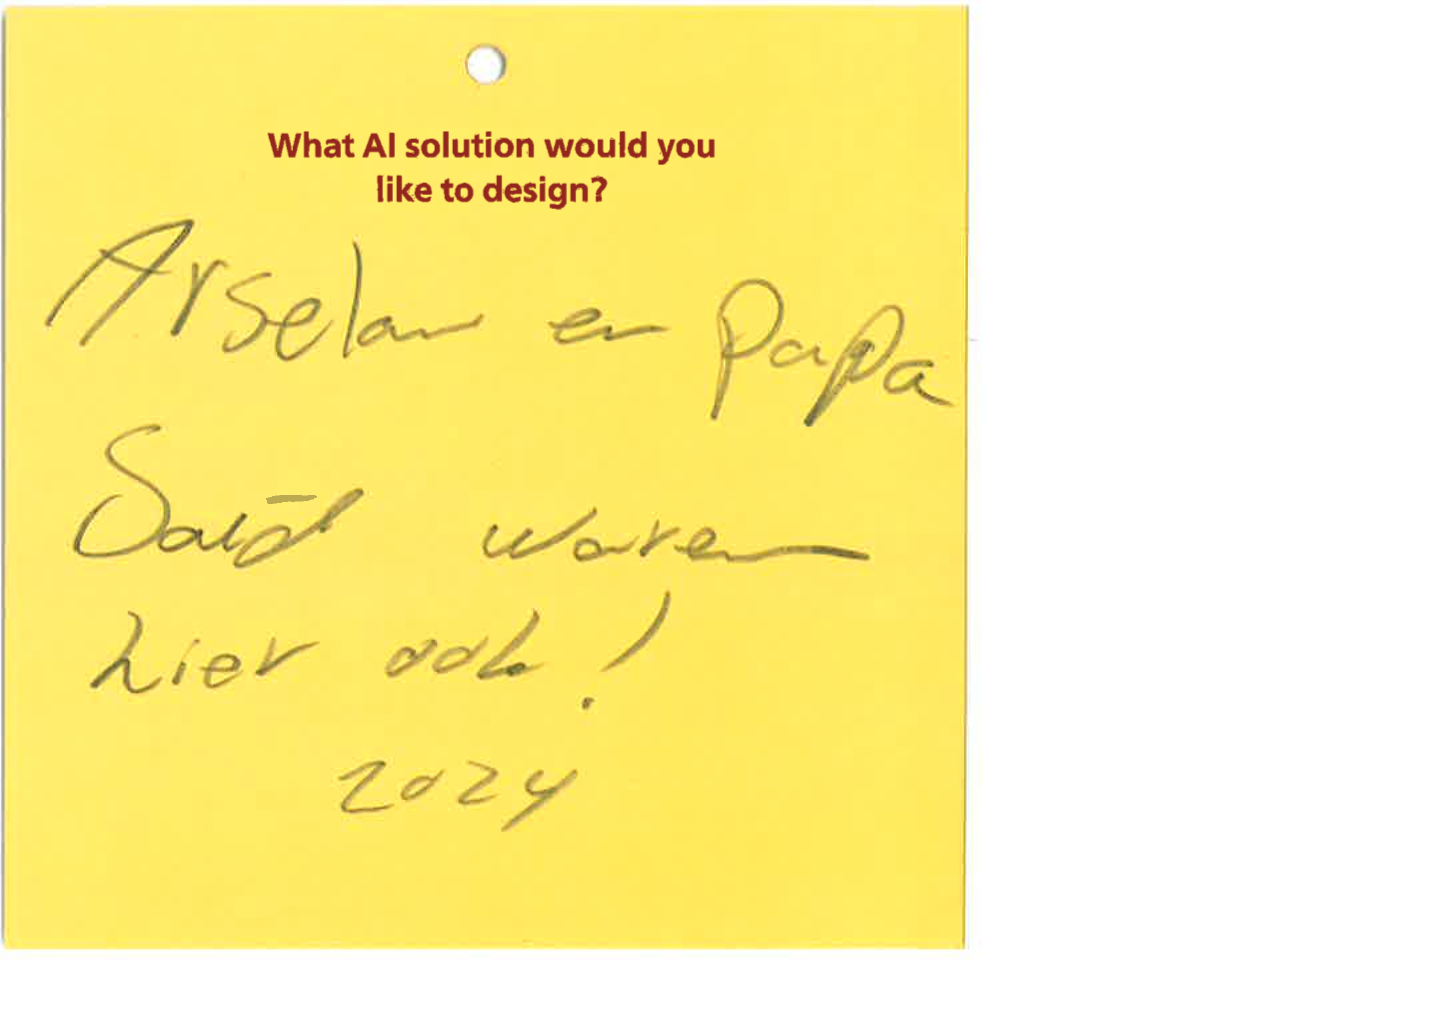 What AI solution would you
like to design?
Arselan en Papa
Saïd waren
hier ook!
2024